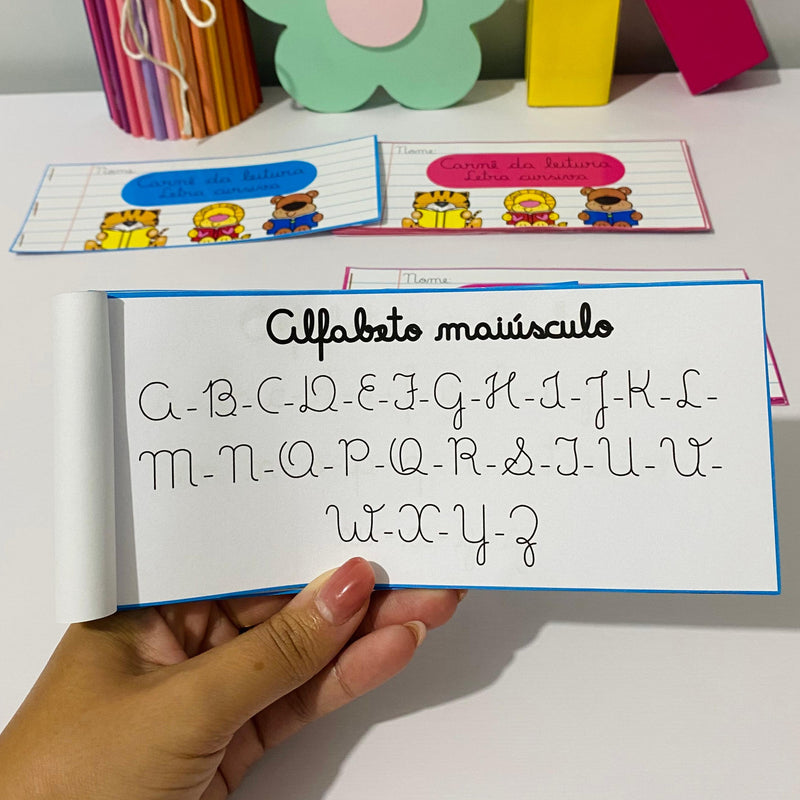 Nome:
Carnê da leitura
Letra cursiva
Nome:
Carnê da leitura
Letra cursiva
Nome:
Alfabeto maiúsculo
A-B-C-D-E-F-G-H-I-J-K-L-
M-N-O-P-Q-R-S-T-U-V-
W-X-Y-Z